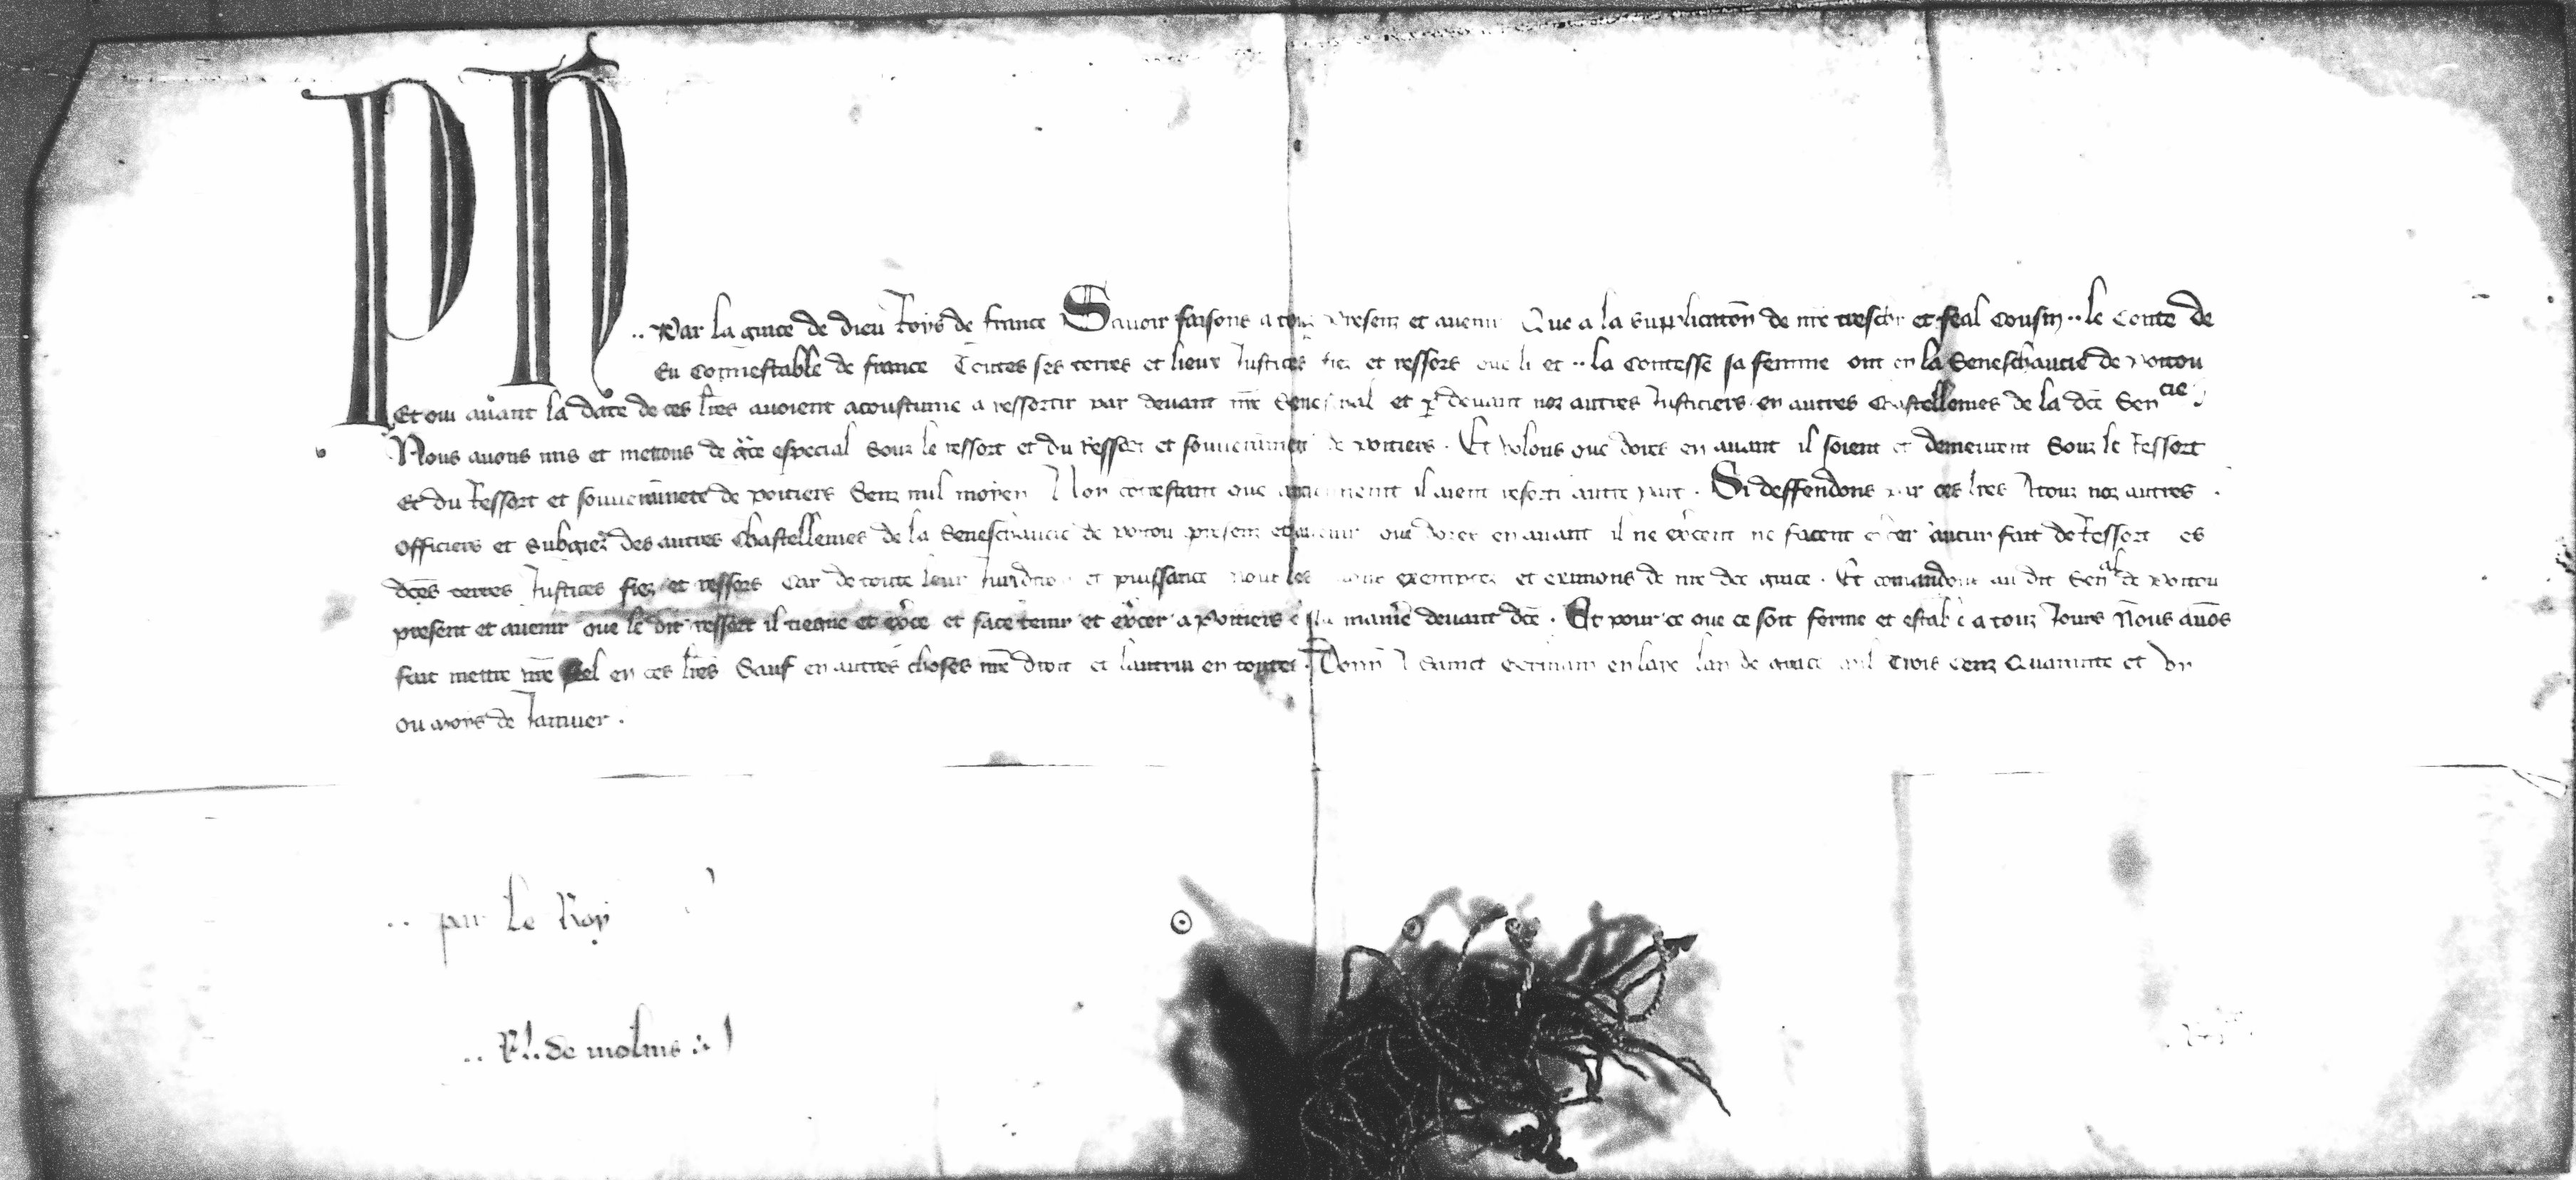 PH .. Par la grace de dieu Roys de france Savoir faisons a touz presenz et avenir Que a la supplication de nr̄e treschr et feal Cousin .. le Conte de
Eu Connestable de france Toutes ses terres et lieux Justices fiez et ressors que li et .. la Contesse sa femme ont en la Seneschaucie de poitou
Et qui avant la date de ces lr̄es avoient acoustume a ressortir par devant nr̄e Seneschal et p devant noz autres Justiciers en autres Chastellenies de la dce Sencie
Nous avons mis et mettons de gr̄ce especial Souz le ressort et du Ressort et souverainete de poitiers . Et volons que dores en avant il soient et demeurent Souz le Ressort
Et du Ressort et souverainnete de poitiers Senz nul moyen Non contrestant que anciennement il aient resorti autre part . Si deffendons par ces lr̄es A touz noz autres
Officiers et Subgiez des autres Chastellenies de la Seneschaucie de poitou presenz et avenir que dores en avant il ne exercent ne facent excer aucun fait de Ressort es
dc̄es terres Justices fiez et ressors Car de toute leur Juridicion et puissance nous les avons exemptez et exemons de nr̄e dce grace . Et comandons au dit Senal de poitou
present et avenir que le dit ressort il tiegne et exerce et face tenir et excer a Poitiers en la maniere devant dc̄e . Et pour ce que ce soit ferme et estable a touz Jours Nous avōs
fait mettre nr̄e Seel en ces lr̄es Sauf en autres choses nr̄e droit et lautrui en toutes . Donn A Saint Germain en laye lan de grace mil Trois cenz Quarante et un
ou moys de Janvier .
.. par le Roy
.. P. de molins